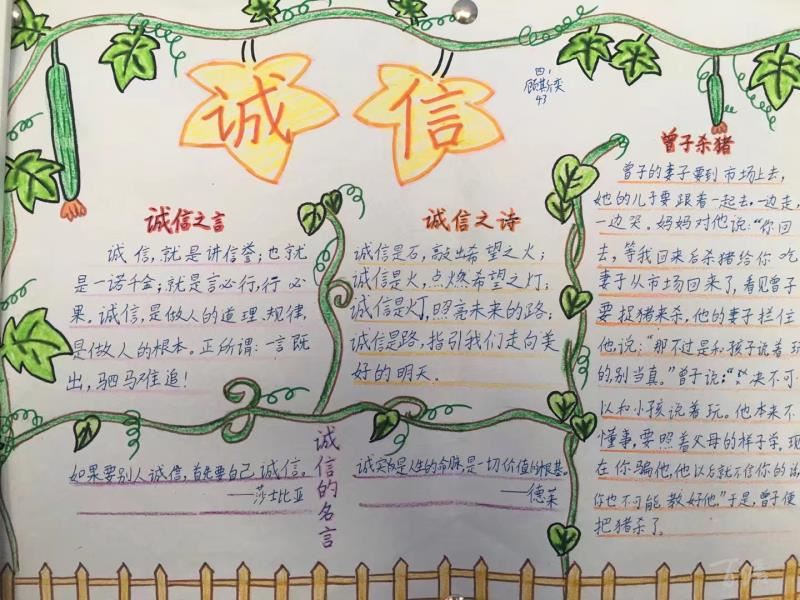 诚信
四、
顾斯奕
43
诚信之言
诚信,就是讲信誉;也就
是一诺千金;就是言必行,行必
果。诚信,是做人的道理、规律,
是做人的根本。正所谓:一言既
出,驷马难追!
诚信之诗
诚信是石,敲出希望之火;
诚信是火,点燃希望之灯;
诚信是灯,照亮未来的路;
诚信是路,指引我们走向美
好的明天。
曾子杀猪
曾子的妻子要到市场上去,
她的儿子要跟着一起去,一边走,
一边哭。妈妈对他说:“你回
去,等我回来后杀猪给你吃
妻子从市场回来了,看见曾子
要捉猪来杀,他的妻子拦住
他说:“那不过是和孩子说着玩
的,别当真。”曾子说:“决不可
以和小孩说着玩。他本来不
懂事,要照着父母的样子学,现
在你骗他,他以后就不信你的话
你也不可能教好他。”于是,曾子便
把猪杀了。
诚信的名言
如果要别人诚信,首先要自己诚信。
——莎士比亚
诚实是人生的命脉,是一切价值的根基。
——德莱